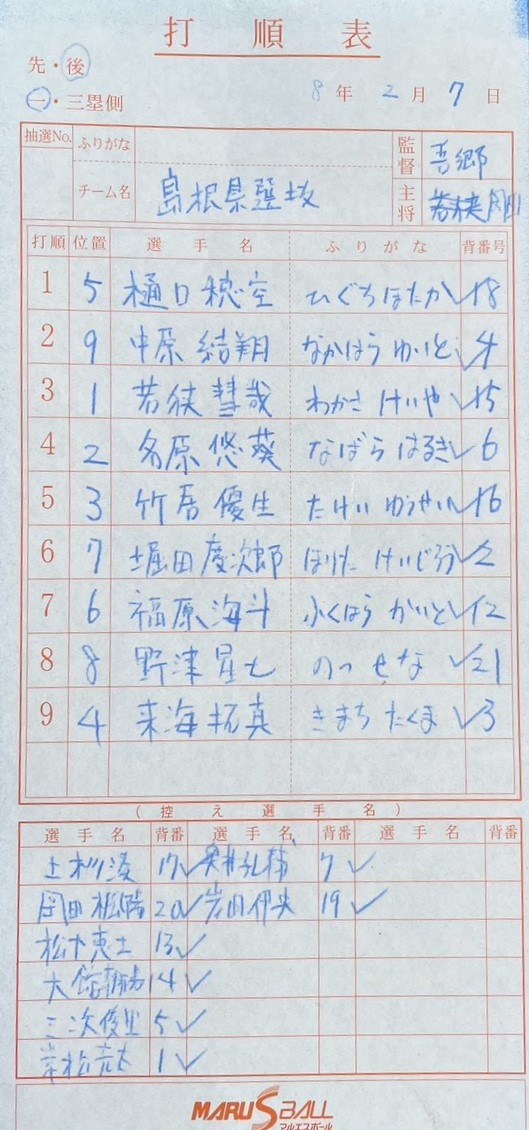 打順表
先・後
一・三塁側
8年2月7日
抽選No. ふりがな 監督 吾郷
チーム名 島根県選抜 主将
打順 位置 選手名 ふりがな 背番号
1 5 樋口穂空 ひぐちほたか 18
2 9 中原結翔 なかはらゆいと 4
3 1 若狭彗哉 わかさけいや 15
4 2 名原悠葵 なばらはるき 6
5 3 竹居優生 たけいゆうせい 16
6 7 堀田慶次郎 ほりたけいじろう 2
7 6 福原海斗 ふくはらかいと 12
8 8 野津星七 のつせな 21
9 4 来海拓真 きまちたくま 3
(控え選手名)
選手名 背番 選手名 背番 選手名 背番
17 7
岡田 20 岩田 19
13
大 14
三次 5
1
MARUS BALL
マルエスボール